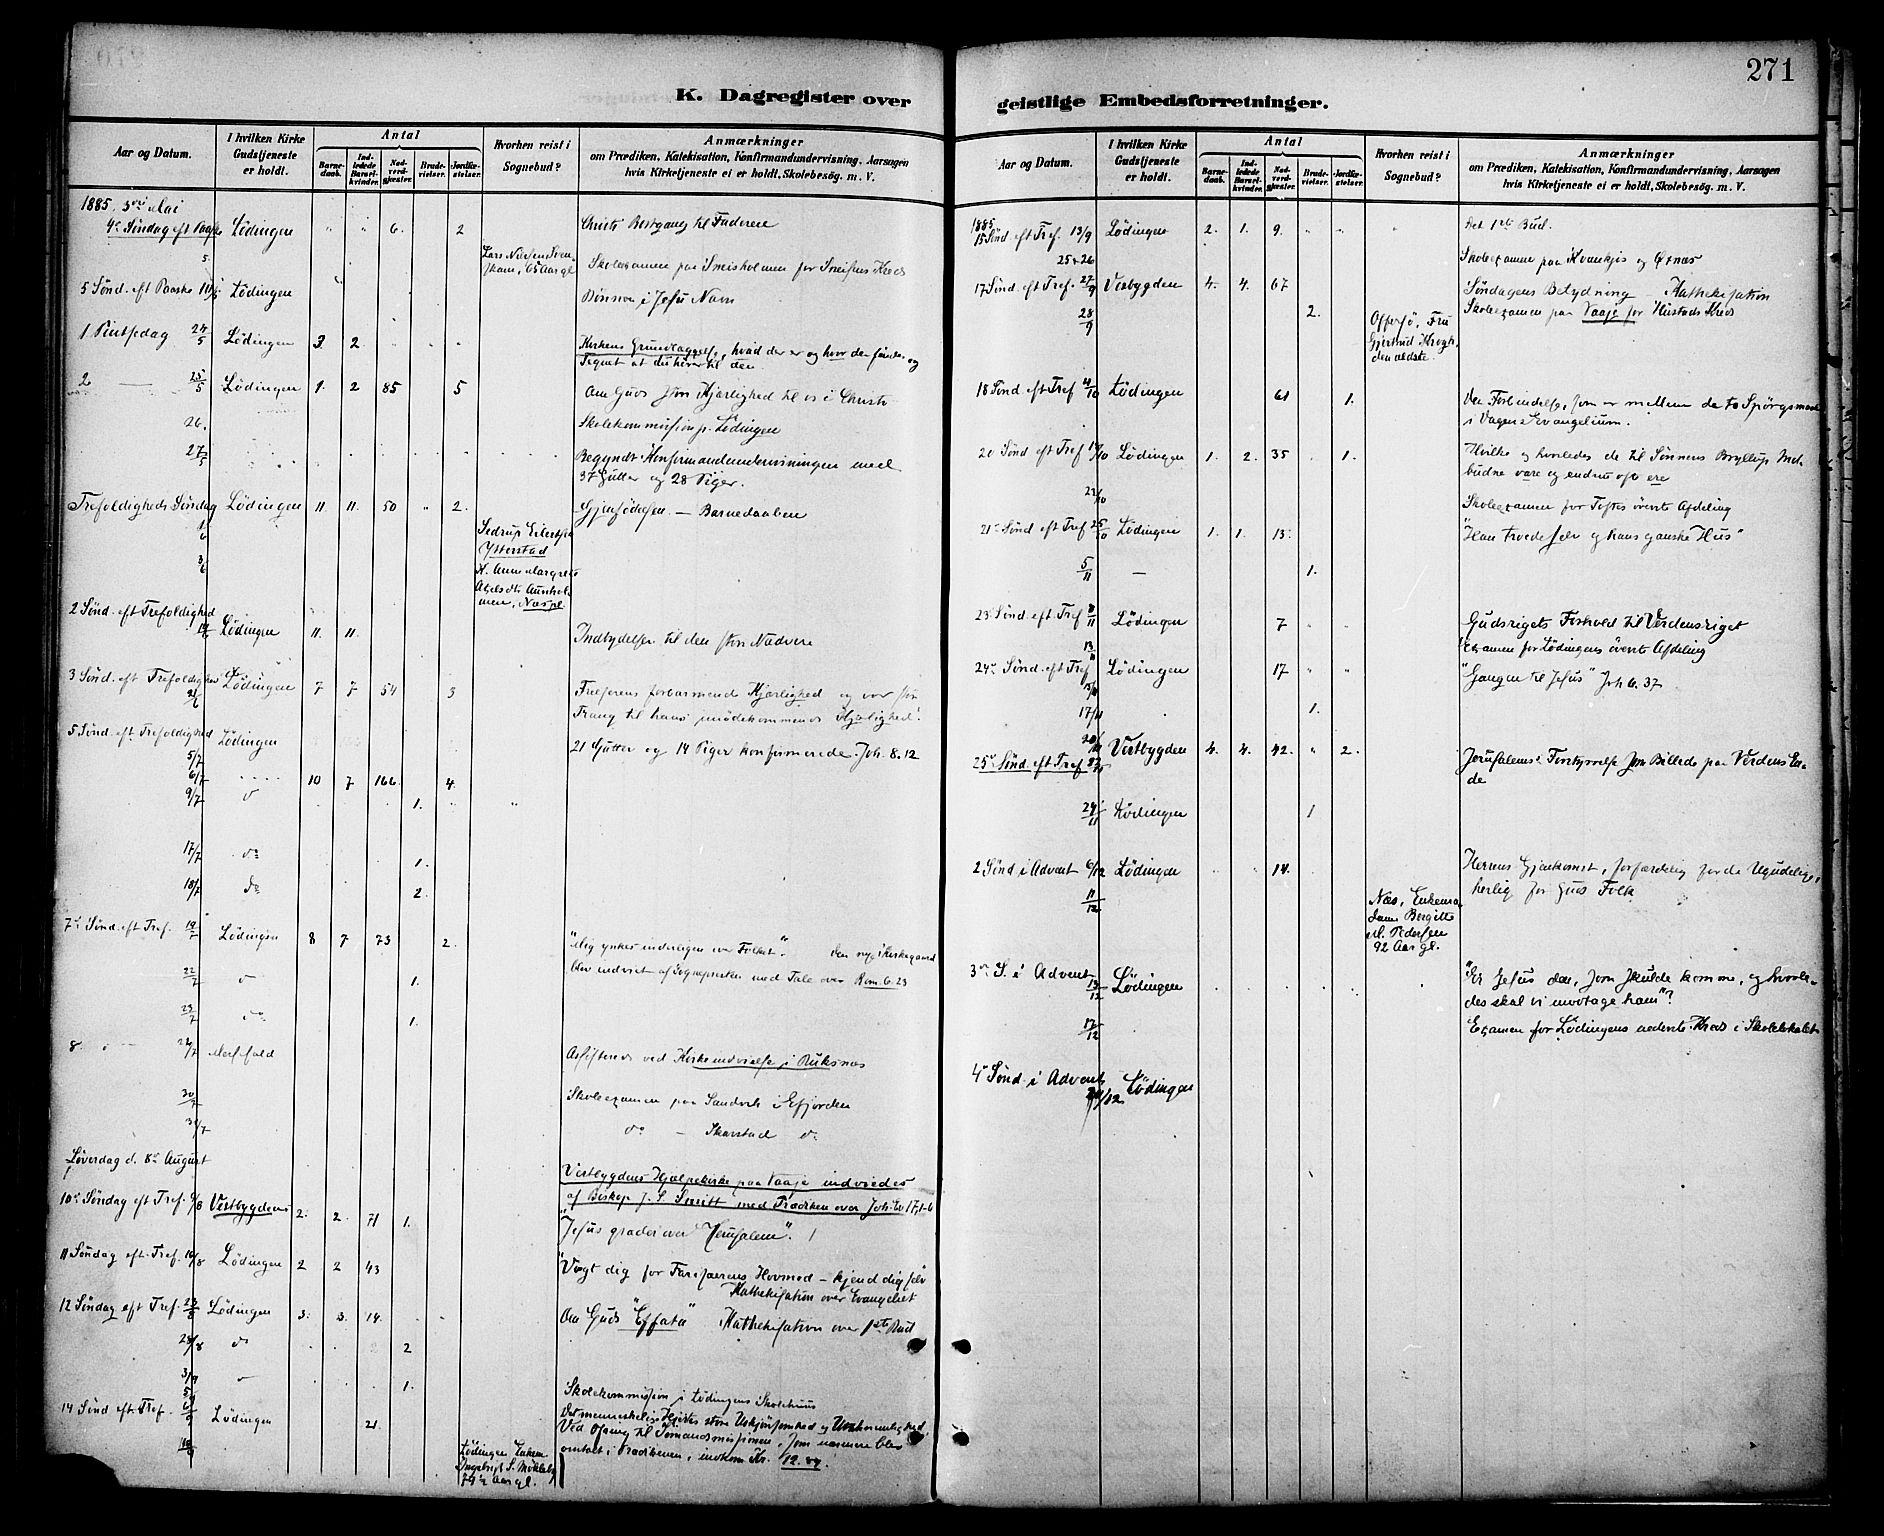 271
K. Dagregister over
Aar og Datum.
I hvilken Kirke Gudstjeneste er holdt.
Antal
Barnedaab.
Indledede Barselkvinder.
Nadverdgjæster.
Brudevielser.
Jordfæstelser.
Hvorhen reist i Sognebud?
Anmærkninger
om Prædiken, Katekisation, Konfirmandundervisning, Aarsagen
hvis Kirketjeneste ei er holdt, Skolebesøg. m. V.
1885, 3die Mai
4de Søndag eft Paaske Lödingen " " 6. 2 Christi Bortgang til Faderen
Lars Nielsen
65 Aar gl. Skoleexamen paa
5 Sønd. eft Paaske 10/5 Lödingen Bönnen i Jesu Navn
1 Pintsedag 24/5 Lödingen 3. 2. Kirkens Grundlæggelse, hvad der er og hvor den findes og
Tegnet at du hører til den.
2 — 25/5 Lödingen 1. 2 85 5 Om Guds Kjærlighed til os i Christo
26. Skolekommission p. Lödingen
27/5 Begyndt Konfirmandundervisningen med
37 Gutter og 28 Piger.
Trefoldigheds Søndag Lödingen 11 11. 50 " 2. Gjenfödelsen — Barnedaaben
Ytterstad
3/6
2 Sønd. eft Trefoldighed Lödingen 11. 11. Indbydelse til den store Nadvere
3 Sønd. eft Trefoldighed 21/6 Lödingen 7 7 54 3 Frelserens forbarmende Kjærlighed og vor
Trang til hans imödekommende Kjærlighed.
5 Sønd. eft Trefoldighed 5/7 Lödingen 21 Gutter og 14 Piger konfirmerede. Joh. 8.12
6/7 10 7 166 4.
9/7 1.
17/7 do 1.
18/7 do 2.
7de Sønd. eft Tref. 19/7 Lödingen 8 7 73 2. "Mig ynkes inderligen over Folket". Den nye Kirkegaard
blev indviet af Sognepresten med Tale over Rom. 6.23
22/7 1.
23/7 do 1.
8 — 26/7 Messefald Assisterede ved Kirkeindvielse i
30/7 Skoleexamen paa Sandvik i Efjorden
31/7 do — Skarstad do
Løverdag d. 8de August Vestbygdens Hjælpekirke paa Vaaje indviedes
af Biskop J. S. Smitt med Prædiken over Joh. Ev 17,1-6
10de Søndag eft Tref. 9/8 Vestbygden 2. 2. 71 1. "Jesus græder over Jerusalem".
11 Søndag eft. Tref. 16/8 Lödingen 2 2 43 "Vogt dig for Farisæerens Hovmod — kjend dig selv"
Kathekisation over Evangeliet
12 Søndag eft Tref. 23/8 Lödingen 3. 3. 14. Om Guds "Effata" Kathekisation over 1ste Bud
28/8 do 2
3/9 1.
Skolekommission i Lödingens Skolehuus
14 Sønd eft Tref. 6/9 Lödingen 21. Det menneskelige Hjertes store Uskjønsomhed og Utaknemlighed
Ved Ofring til Sömandsmissionen, som nærmere blev
omtalt i Prædikenen, indkom Kr. 12.89.
Lödingen, Enkem
74½ Aar gl.
geistlige Embedsforretninger.
Aar og Datum.
I hvilken Kirke Gudstjeneste er holdt.
Antal
Barnedaab.
Indledede Barselkvinder.
Nadverdgjæster.
Brudevielser.
Jordfæstelser.
Hvorhen reist i Sognebud?
Anmærkninger
om Prædiken, Katekisation, Konfirmandundervisning, Aarsagen
hvis Kirketjeneste ei er holdt, Skolebesøg. m. V.
1885
15 Sønd eft Tref. 13/9 Lödingen 2. 1. 9. " " " Det 1ste Bud.
25 & 26 Skoleexamen paa Kvankjos og Ørnæs
17 Sønd. eft Tref. 27/9 Vestbygden 4. 4. 67 Søndagens Betydning — Kathekisation
28/9 2. Skoleexamen paa Vaaje for Hustads Kreds
Offersø, Fru
Gjertrud Krogh,
den ældste.
18 Sønd eft Tref 4/10 Lödingen 61 1. Den Forbindelse, som er mellem de to Spörgsmaal
i Dagens Evangelium.
20 Sønd eft Tref 18/10 Lödingen 1. 2. 35 1. Hvilke og hvorledes de til Sønnens Bryllup Ind-
budne vare og endnu ofte ere
23/10 Skoleexamen for Toftes överste Afdeling
21de Sønd eft Tref 25/10 Lödingen 1. 1. 13. "Han troede selv og hans ganske Hus"
5/11 — 1.
23 Sønd eft Tref 8/11 Lödingen 7 " " Gudsrigets Forhold til Verdensriget
13/11 Examen for Lödingens överste Afdeling
24de Sønd. eft Tref 15/11 Lödingen 17 " " "Gangen til Jesus" Joh 6.37
17/11 1.
25de Sønd. eft Tref 22/11 Vestbygden 4. 4. 42. " 2. Jerusalems Forstyrrelse som Billede paa Verdens En-
de
29/11 Lödingen 1
2 Sønd i Advent 6/12 Lödingen 14. Herrens Gjenkomst, forfærdelig for de Ugudelige,
herlig for Guds Folk
11/12 Næs, Enkema-
dame Bergitte
M. Pedersen
92 Aar gl.
3die S. i Advent 13/12 Lödingen "Er Jesus den, som skulde komme, og hvorle-
des skal vi modtage ham"?
17/12 Examen for Lödingens nederste Kreds i Skolelokalet
4de Sønd i Advent 20/12 Lödingen